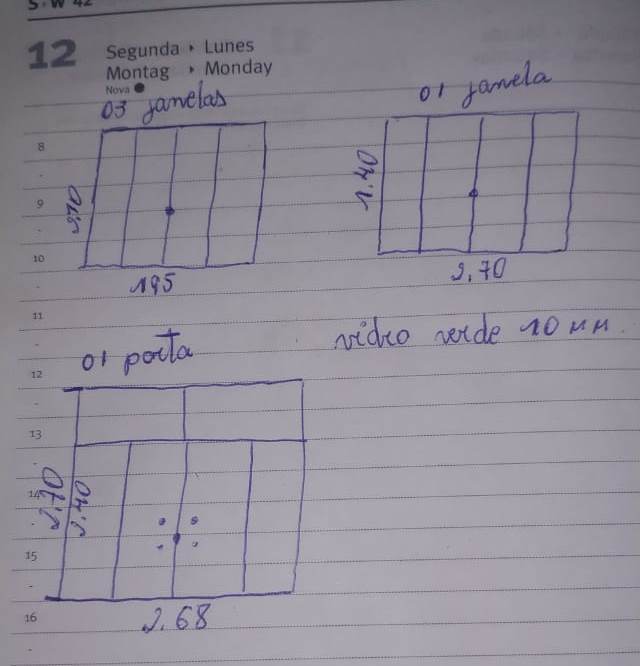 S·W 42
12
Segunda · Lunes
Montag · Monday
Nova
03 janelas
01 janela
8
9
10
1.40
195
2.70
11
01 porta
vidro verde 10 mm.
12
13
14
15
16
2.70
2.40
2.68